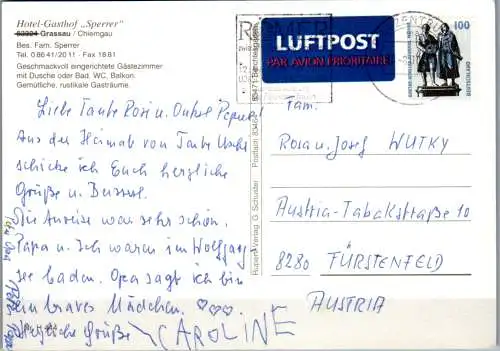 Hotel-Gasthof „Sperrer"
83224 Grassau / Chiemgau
Bes. Fam. Sperrer
Tel. 0 86 41/20 11 · Fax 18 81
Geschmackvoll eingerichtete Gästezimmer
mit Dusche oder Bad, WC, Balkon.
Gemütliche, rustikale Gasträume.
Liebe Tante Rosi u. Onkel
Aus der Heimat von Tante
schicke ich Euch herzliche
Grüße u. Busserl.
Die Anreise war sehr schön.
Papa u. Ich waren im Wolfgang
see baden. Opa sagt ich bin
ein braves Mädchen. ♡♡♡
Herzliche Grüße CAROLINE
Rupert-Verlag O. Schuster
Postfach 83464
83471 Berchtesgaden
LUFTPOST
PAR AVION PRIORITAIRE
100
Fam.
Rosa u. Josef WUTKY
Austria-Tabakstraße 10
8280 FÜRSTENFELD
AUSTRIA